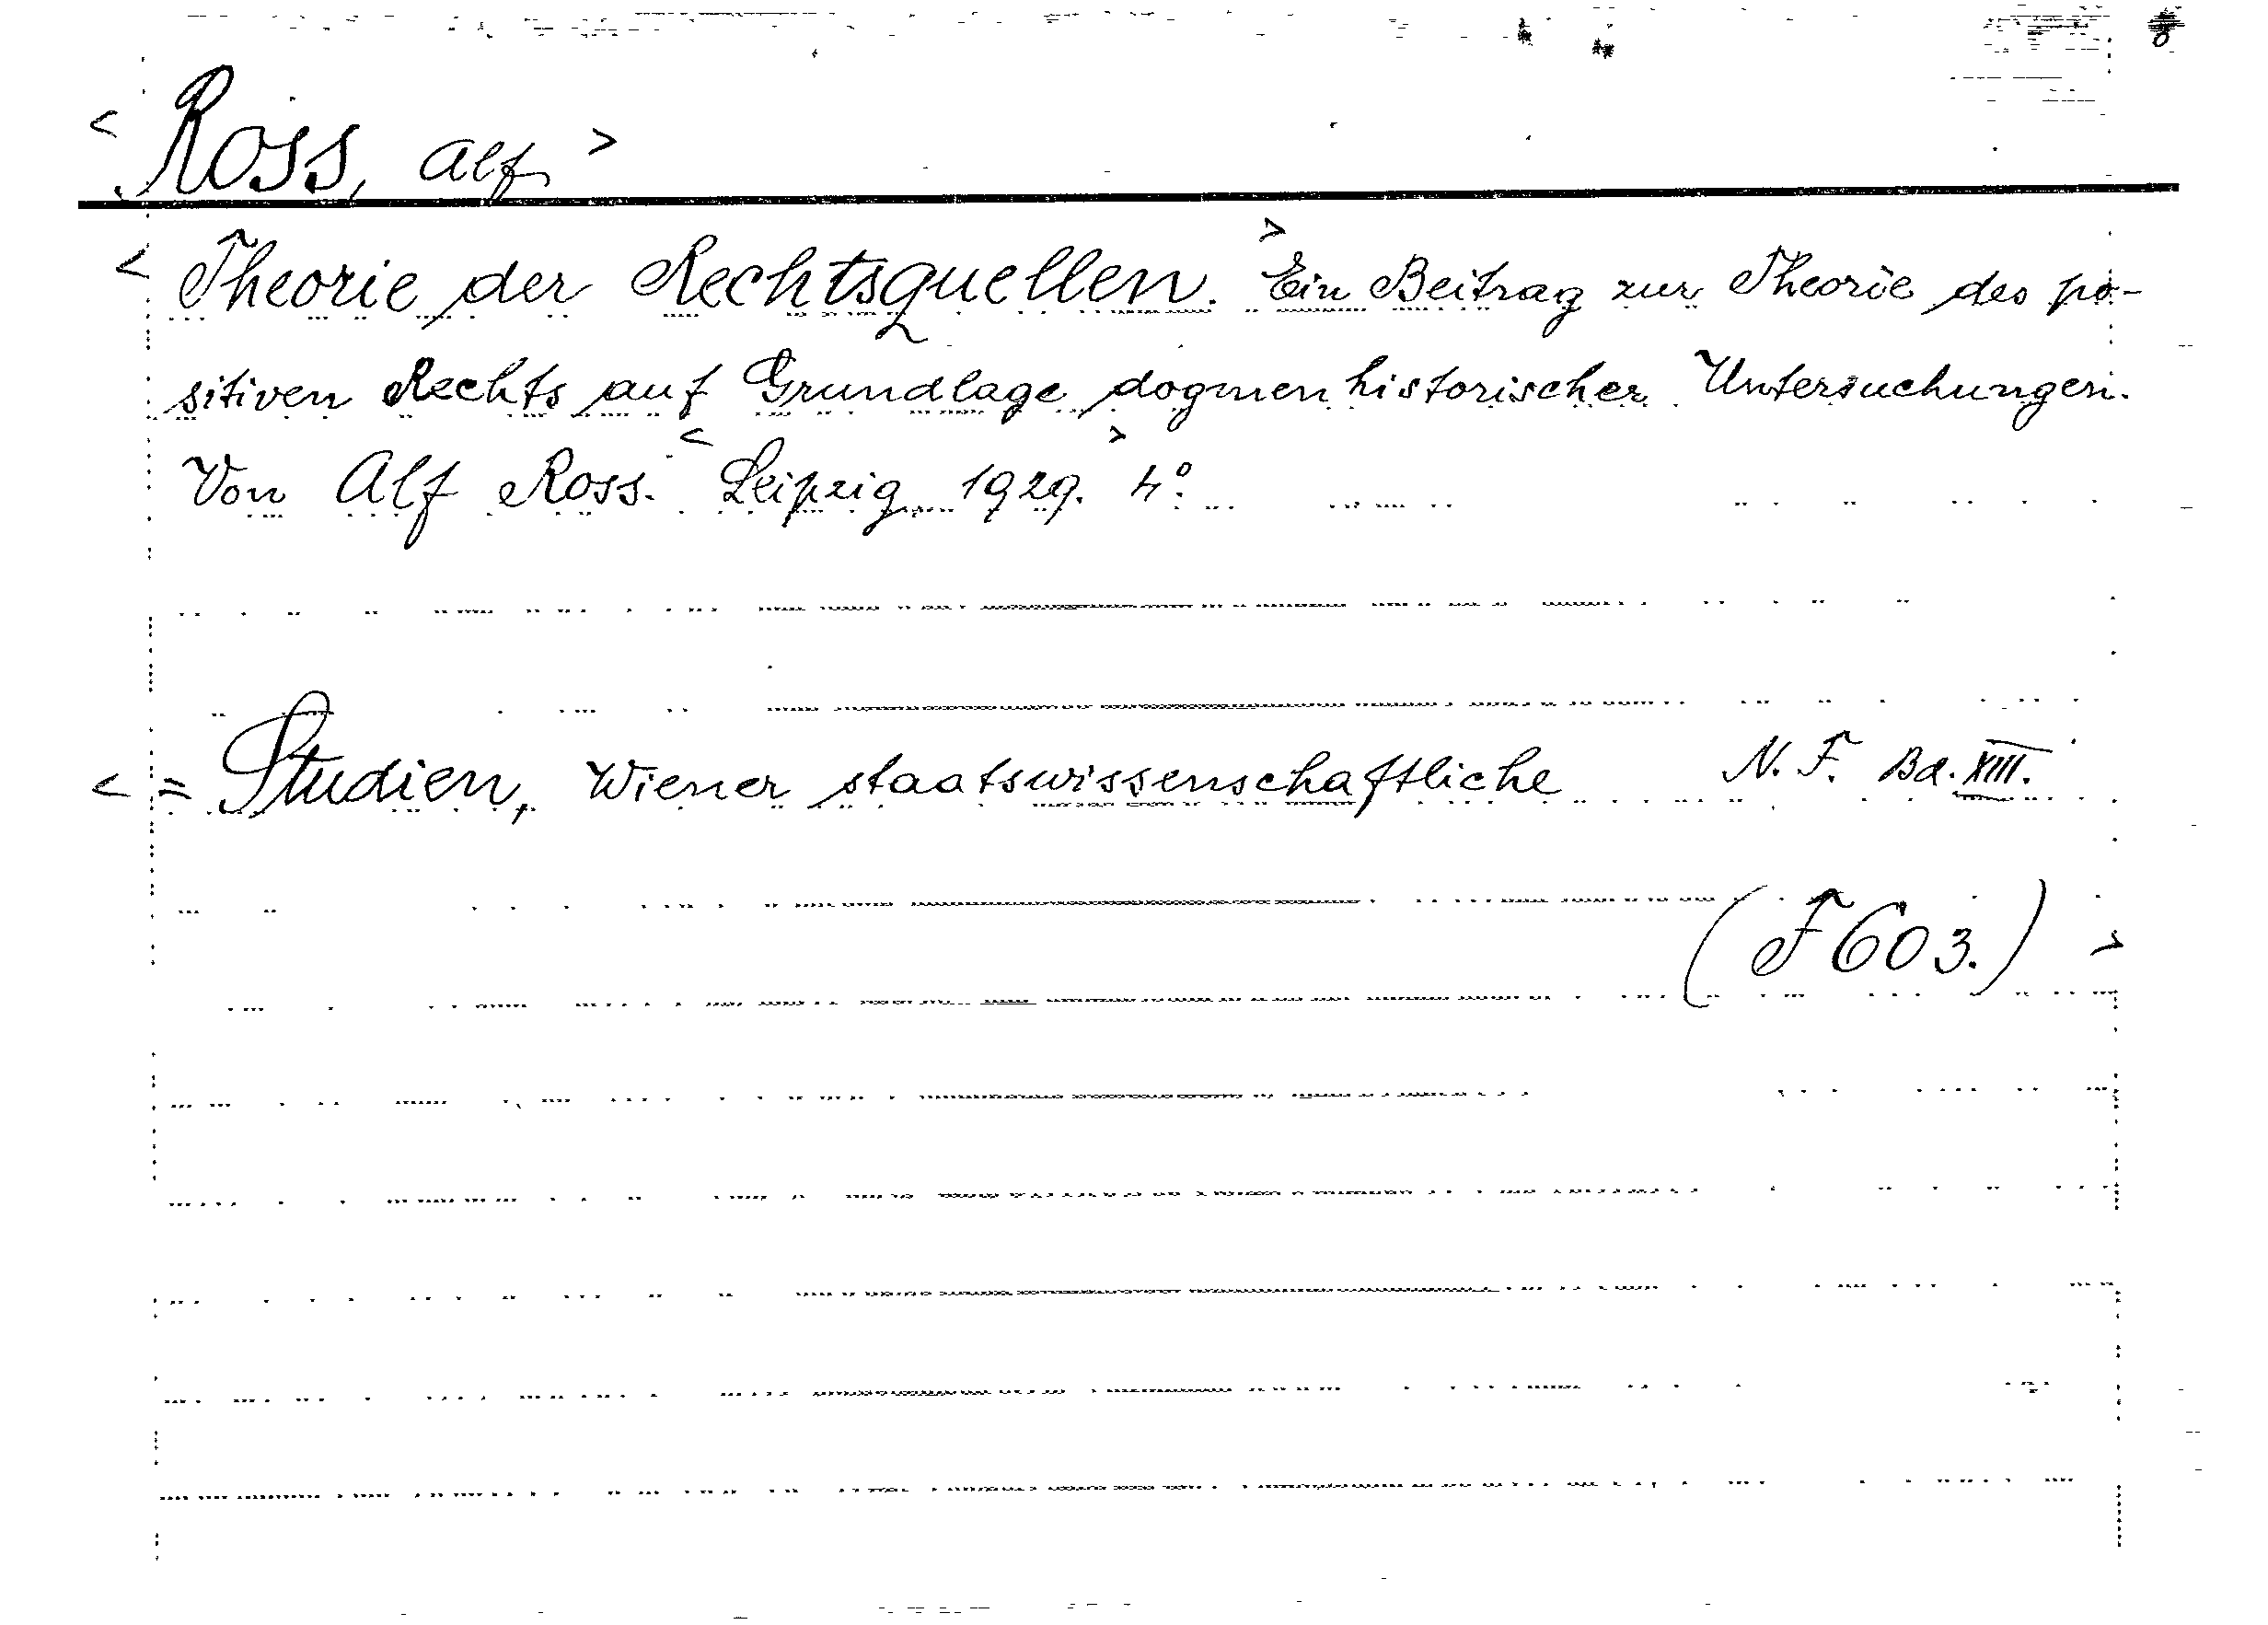 < Ross, Alf >
< Theorie der Rechtsquellen. > Ein Beitrag zur Theorie des po-
sitiven Rechts auf Grundlage dogmenhistorischer Untersuchungen.
Von Alf Ross. < Leipzig 1929. > 4°.
< = Studien, Wiener staatswissenschaftliche N. F. Bd. XIII.
(F 603.) >